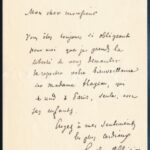 Mon cher monsieur
Vous êtes toujours si obligeant
pour moi que je prends la
liberté de vous demander
votre bienveillance
madame
à Paris, seule, avec
ses enfants
Croyez à mes sentiments
les plus cordiaux